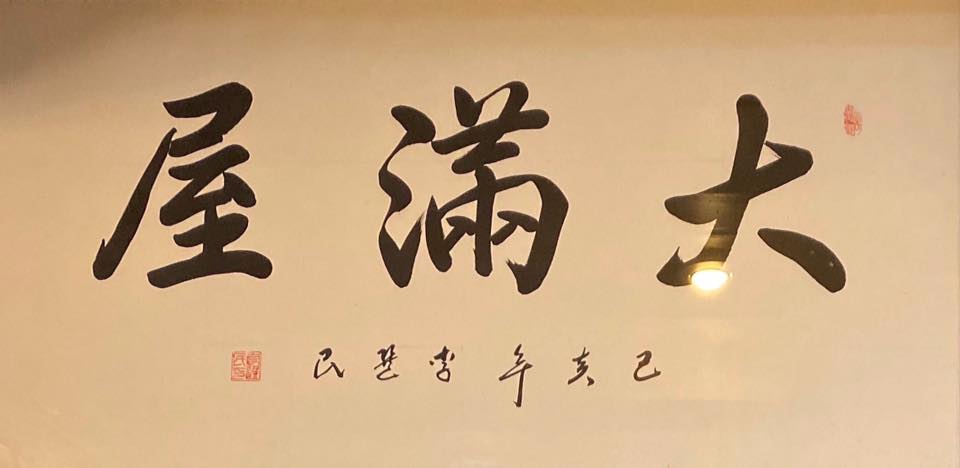 大滿屋
己亥年李選民